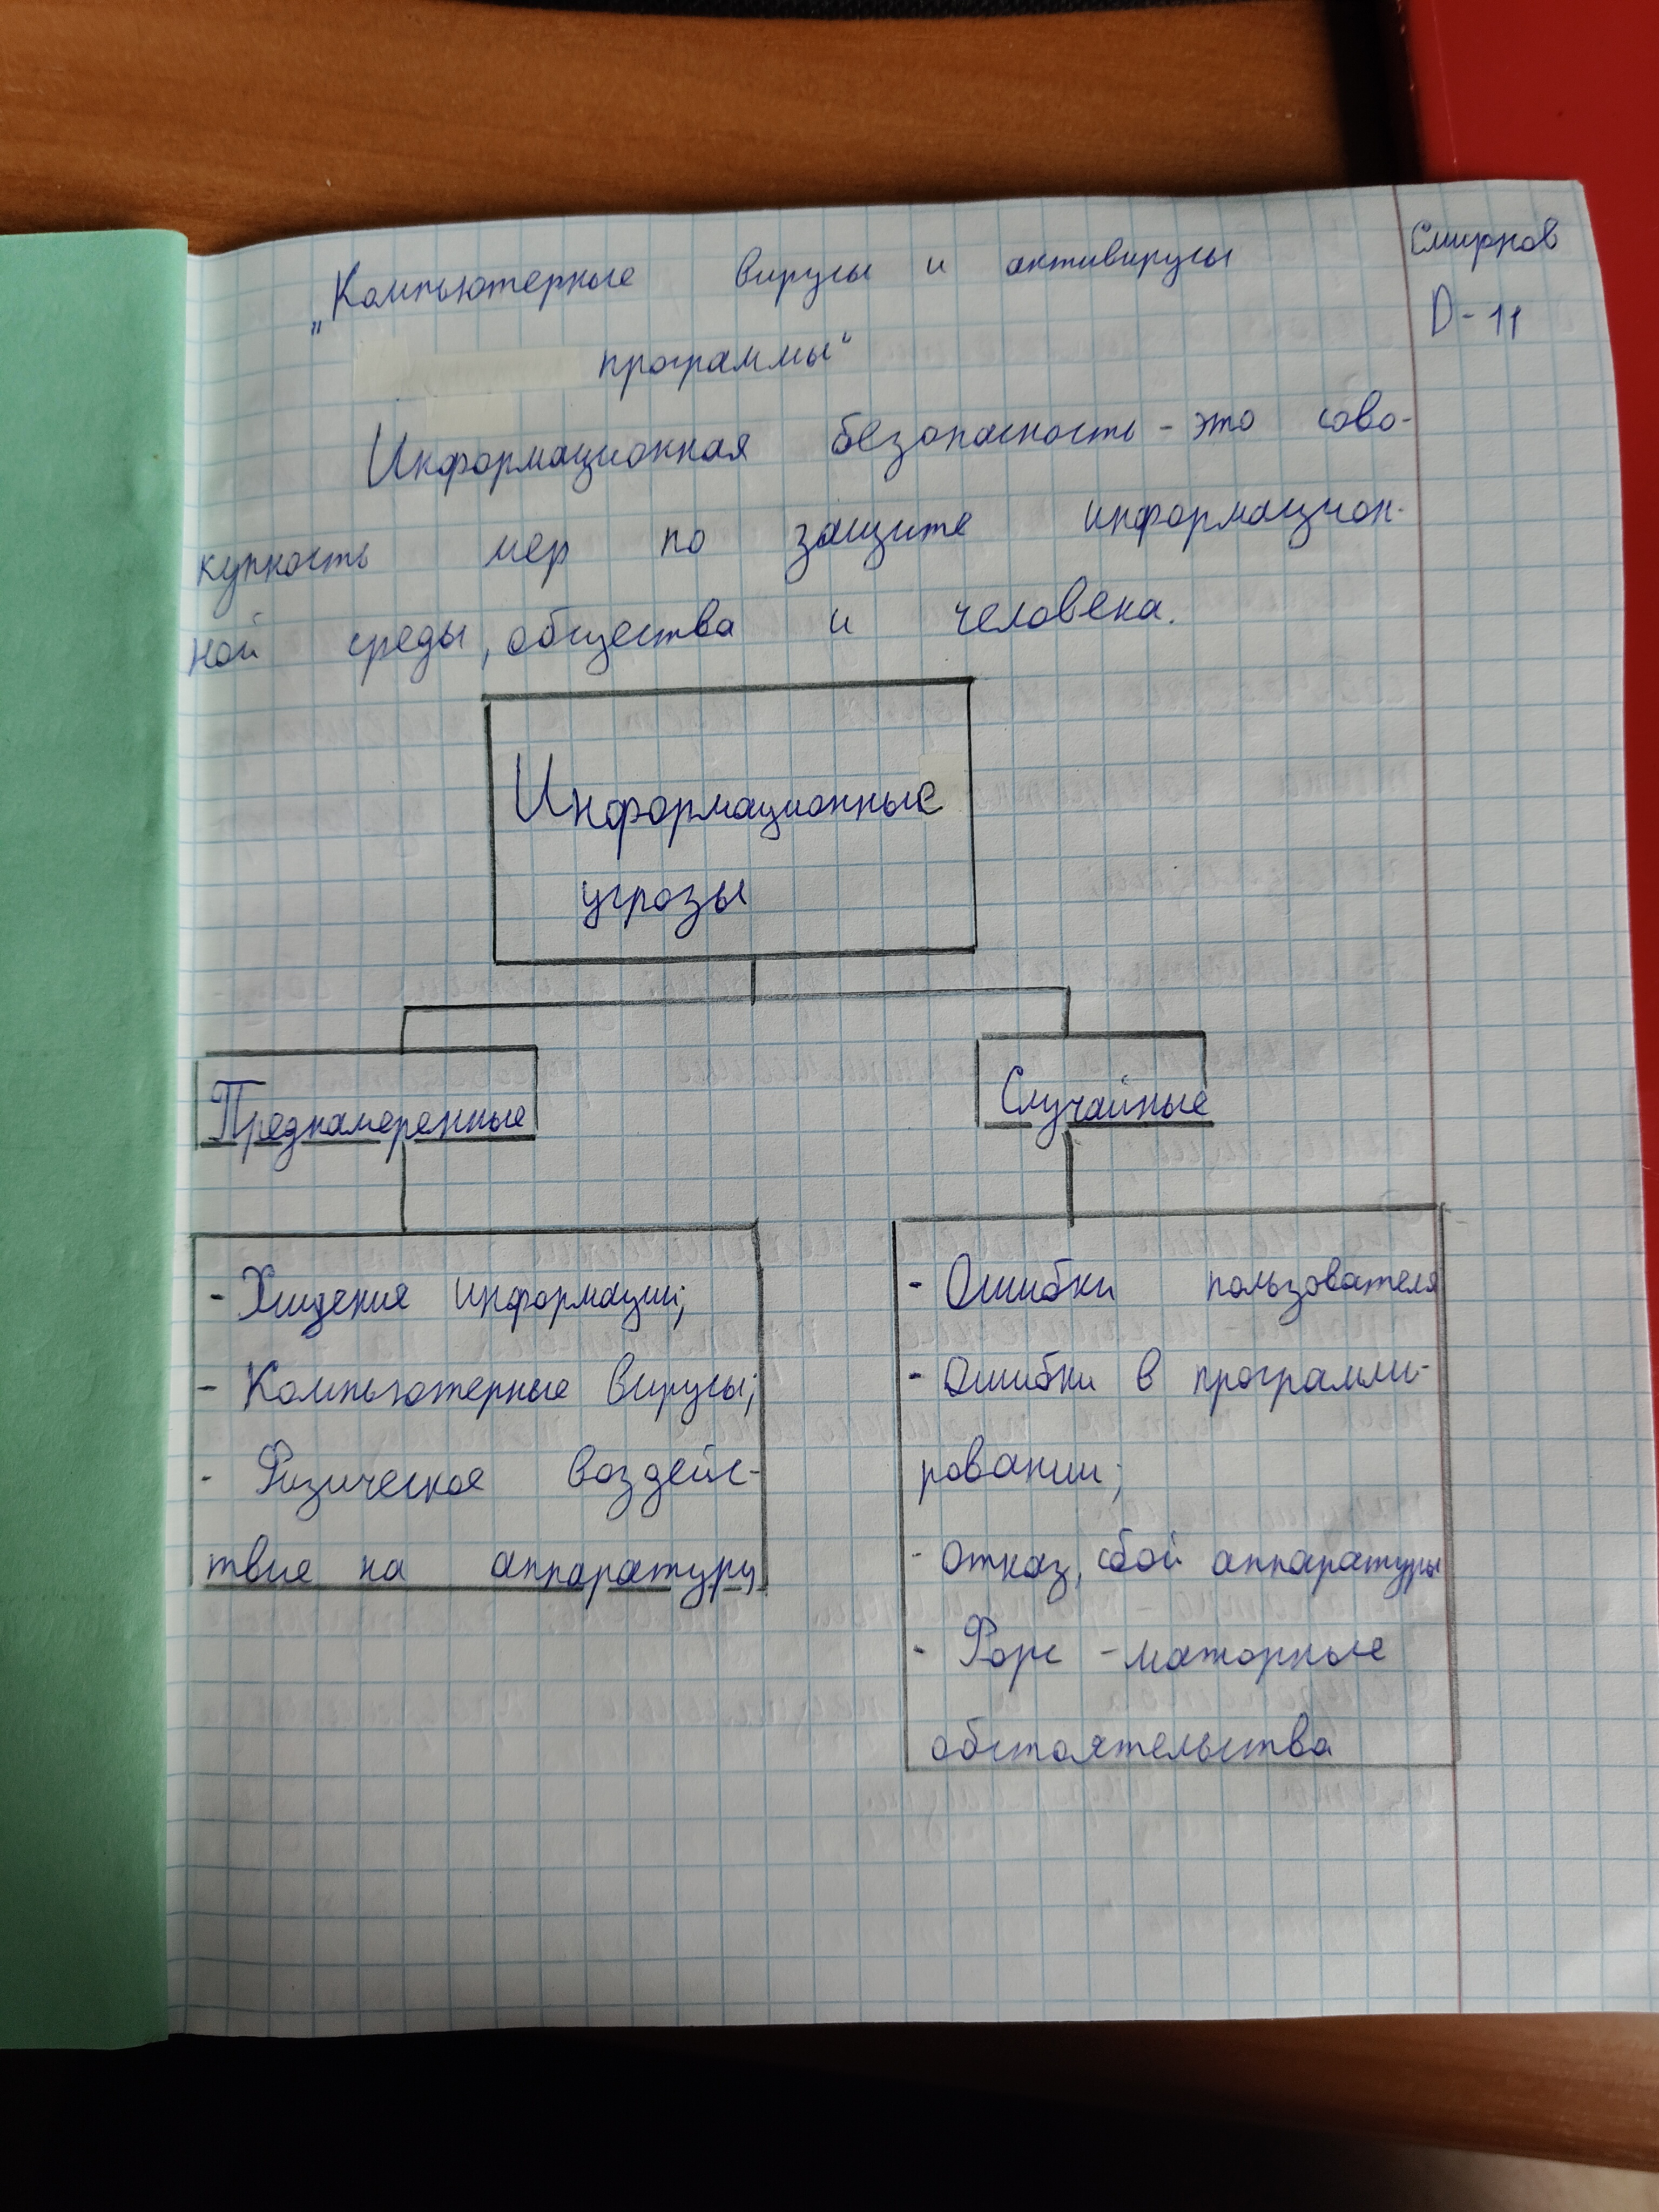 „Компьютерные вирусы и антивирусы
Смирнов
D-11
программы“
Информационная безопасность - это сово-
купность мер по защите информацион-
ной среды, общества и человека.
Информационные
угрозы
Преднамеренные
Случайные
- Хищения информации;
- Компьютерные вирусы;
- Физическое воздейс-
твие на аппаратуру
- Ошибки пользователя
- Ошибки в программи-
ровании;
- Отказ, сбой аппаратуры
- Форс - мажорные
обстоятельства